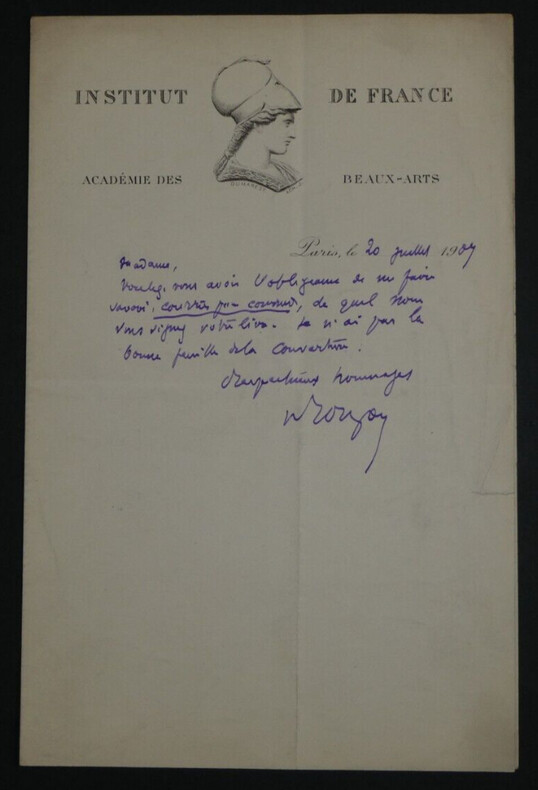 INSTITUT DE FRANCE
ACADÉMIE DES BEAUX-ARTS
Paris, le 20 juillet 1907
Madame,
Voulez-vous avoir l'obligeance de me faire
savoir, courrier par courrier, de quel nom
vous signez votre livre. Je n'ai pas la
bonne feuille de la couverture.
Respectueux hommages